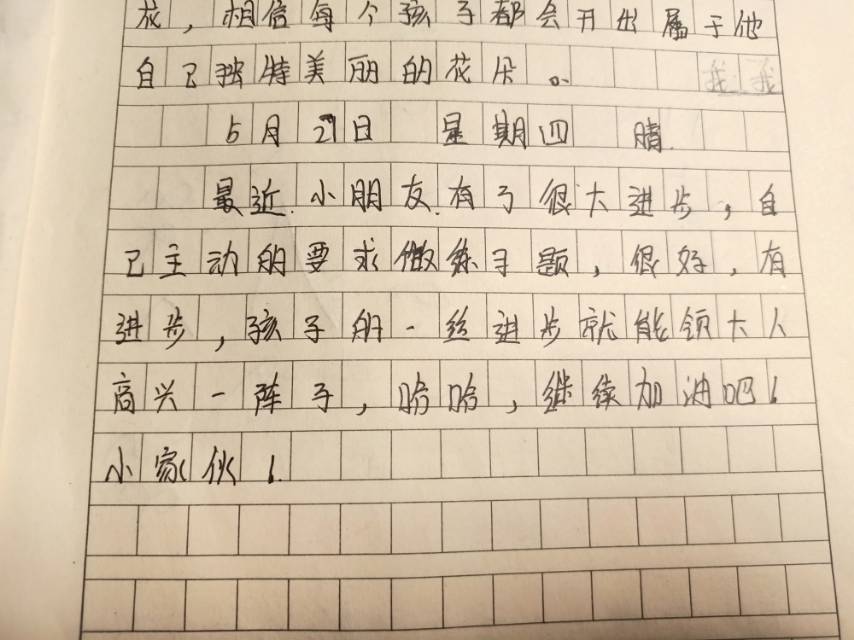 花，相信每个孩子都会开出属于他
自己独特美丽的花朵。 我我
5月21日 星期四 晴
最近小朋友有了很大进步，自
己主动的要求做练习题，很好，有
进步，孩子的一丝进步就能领大人
高兴一阵子，哈哈，继续加油吧！
小家伙！